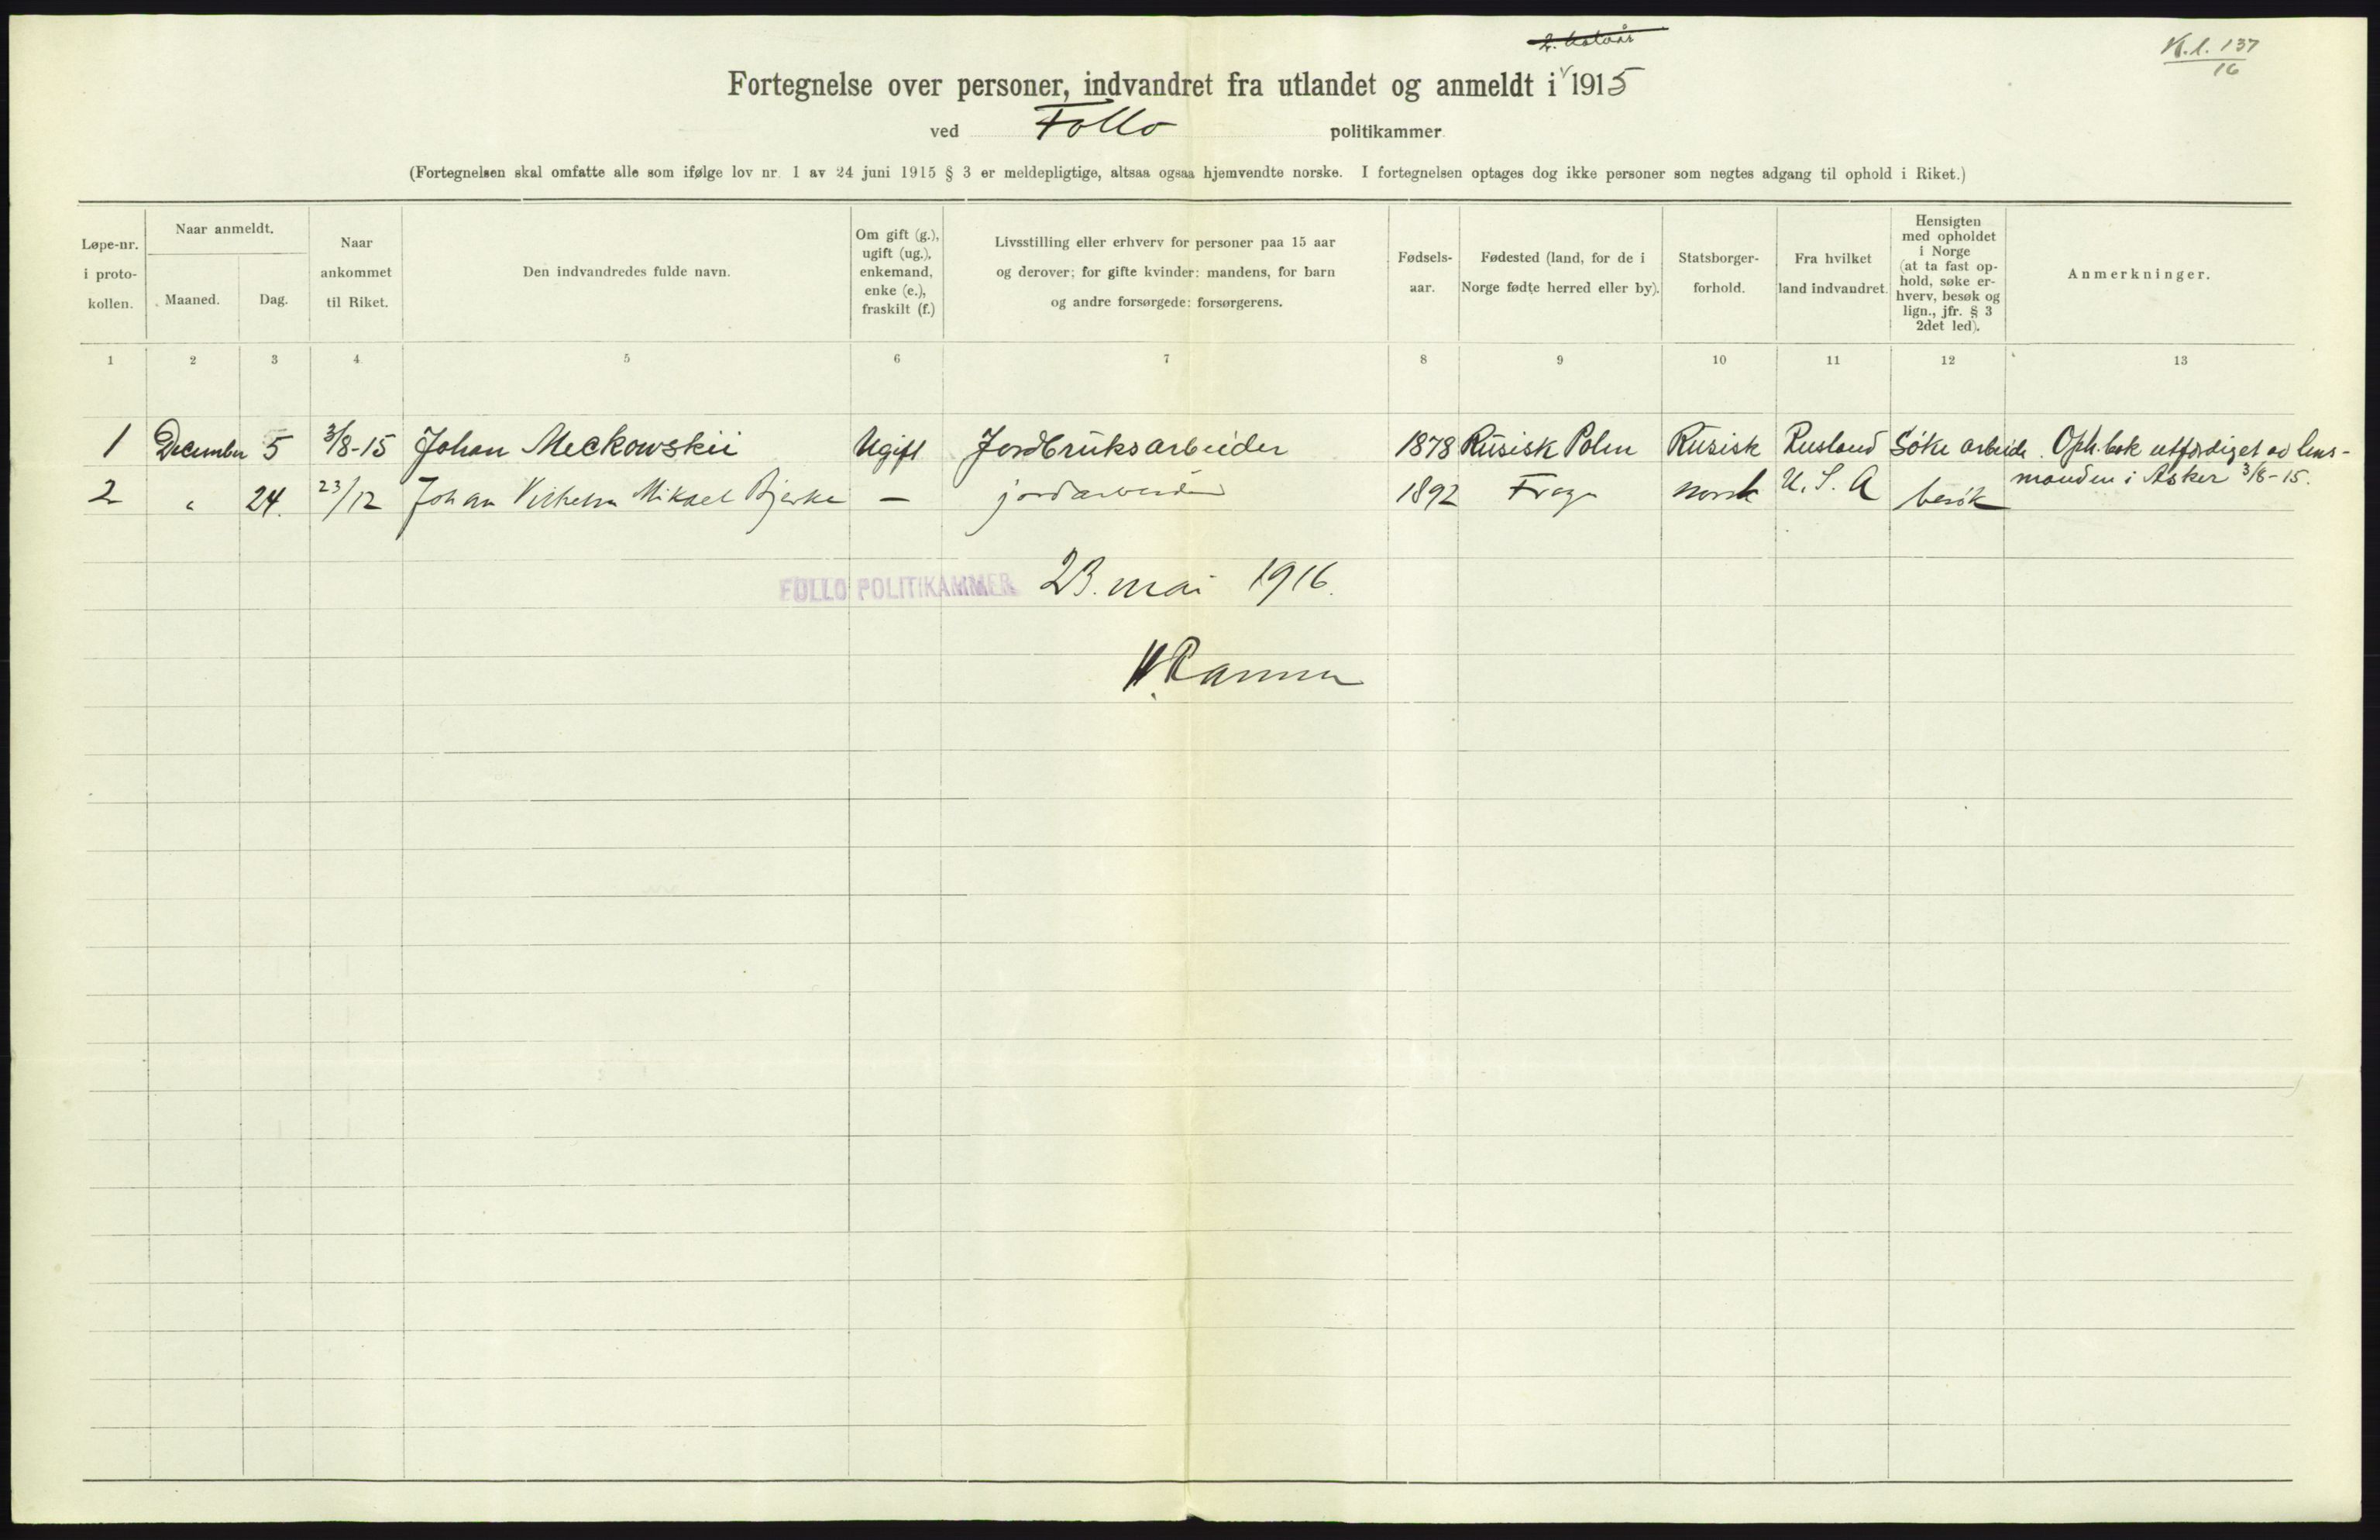 2. halvår
K.l. 137
16
Fortegnelse over personer, indvandret fra utlandet og anmeldt i 1915
ved Follo politikammer
(Fortegnelsen skal omfatte alle som ifølge lov nr. 1 av 24 juni 1915 § 3 er meldepligtige, altsaa ogsaa hjemvendte norske. I fortegnelsen optages dog ikke personer som negtes adgang til ophold i Riket.)
Løpe-nr. i proto- kollen.
Naar anmeldt.
Maaned.
Dag.
Naar ankommet til Riket.
Den indvandredes fulde navn.
Om gift (g.), ugift (ug.), enkemand, enke (e.), fraskilt (f.)
Livsstilling eller erhverv for personer paa 15 aar og derover; for gifte kvinder: mandens, for barn og andre forsørgede: forsørgerens.
Fødsels- aar.
Fødested (land, for de i Norge fødte herred eller by).
Statsborger- forhold.
Fra hvilket land indvandret.
Hensigten med opholdet i Norge (at ta fast op- hold, søke er- hverv, besøk og lign., jfr. § 3 2det led).
Anmerkninger.
1 2 3 4 5 6 7 8 9 10 11 12 13
1 December 5 3/8-15 Johan Meckowskii Ugift Jordbruksarbeider 1878 Rusisk Polen Rusisk Rusland Søke arbeide. Oph. bok utfærdiget av lens-
manden i Asker 3/8-15.
2 " 24. 23/12 Johan Vilhelm Mikael Bjerke — jordarbeider 1892 Frogn norsk U.S.A besøk
FOLLO POLITIKAMMER 23. mai 1916.